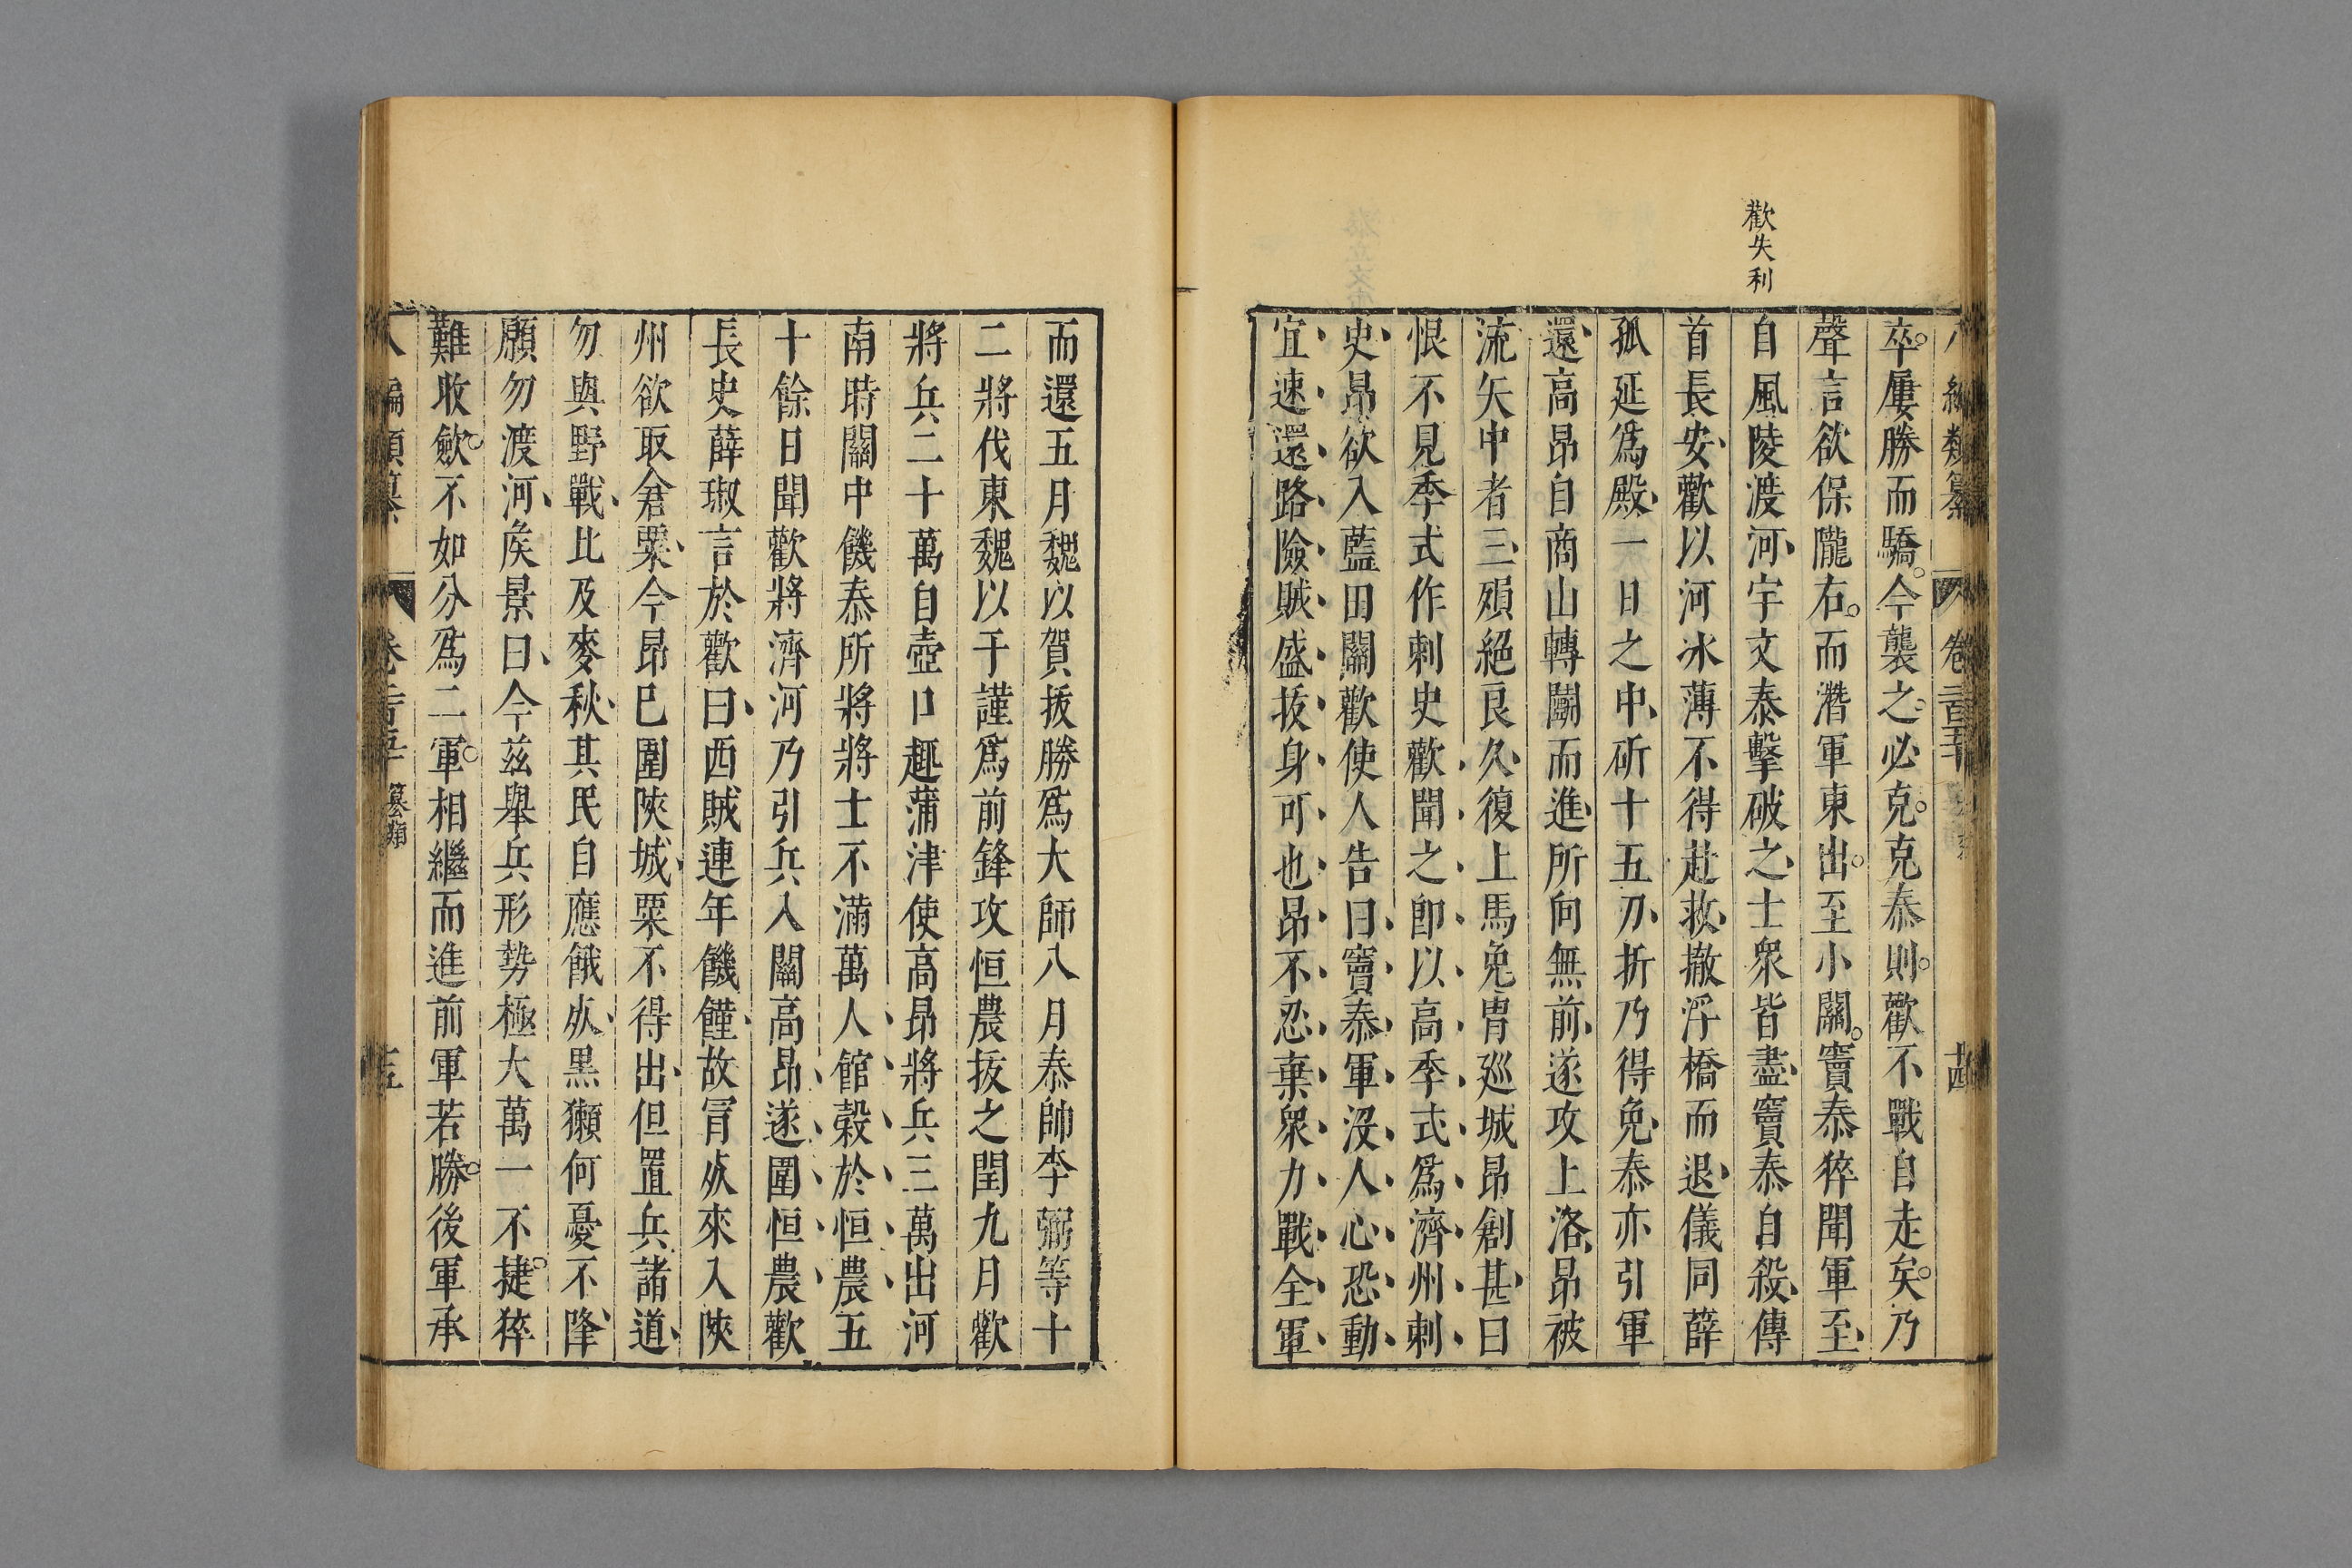 歡失利
卒屢勝而驕今襲之必克克泰則歡不戰自走矣乃
聲言欲保隴右而潛軍東出至小關竇泰猝聞軍至
自風陵渡河宇文泰擊破之士衆皆盡竇泰自殺傳
首長安歡以河冰薄不得赴救撤浮橋而退儀同薛
孤延爲殿一日之中斫十五刀折乃得免泰亦引軍
還高昂自商山轉鬭而進所向無前遂攻上洛昂被
流矢中者三殞絕良久復上馬免冑廵城昂創甚曰
恨不見季式作刺史歡聞之卽以高季式爲濟州刺
史昂欲入藍田關歡使人告曰竇泰軍沒人心恐動
宜速還路險賊盛拔身可也昂不忍棄衆力戰全軍
而還五月魏以賀拔勝爲大師八月泰帥李弼等十
二將伐東魏以于謹爲前鋒攻恒農拔之閏九月歡
將兵二十萬自壺口趣蒲津使高昂將兵三萬出河
南時關中饑泰所將將士不滿萬人館穀於恒農五
十餘日聞歡將濟河乃引兵入關高昂遂圍恒農歡
長史薛琡言於歡曰西賊連年饑饉故冐死來入陝
州欲取倉粟今昂已圍陝城粟不得出但置兵諸道
勿與野戰比及麥秋其民自應餓死黑獺何憂不降
願勿渡河矦景曰今茲舉兵形勢極大萬一不捷猝
難收斂不如分爲二軍相繼而進前軍若勝後軍承